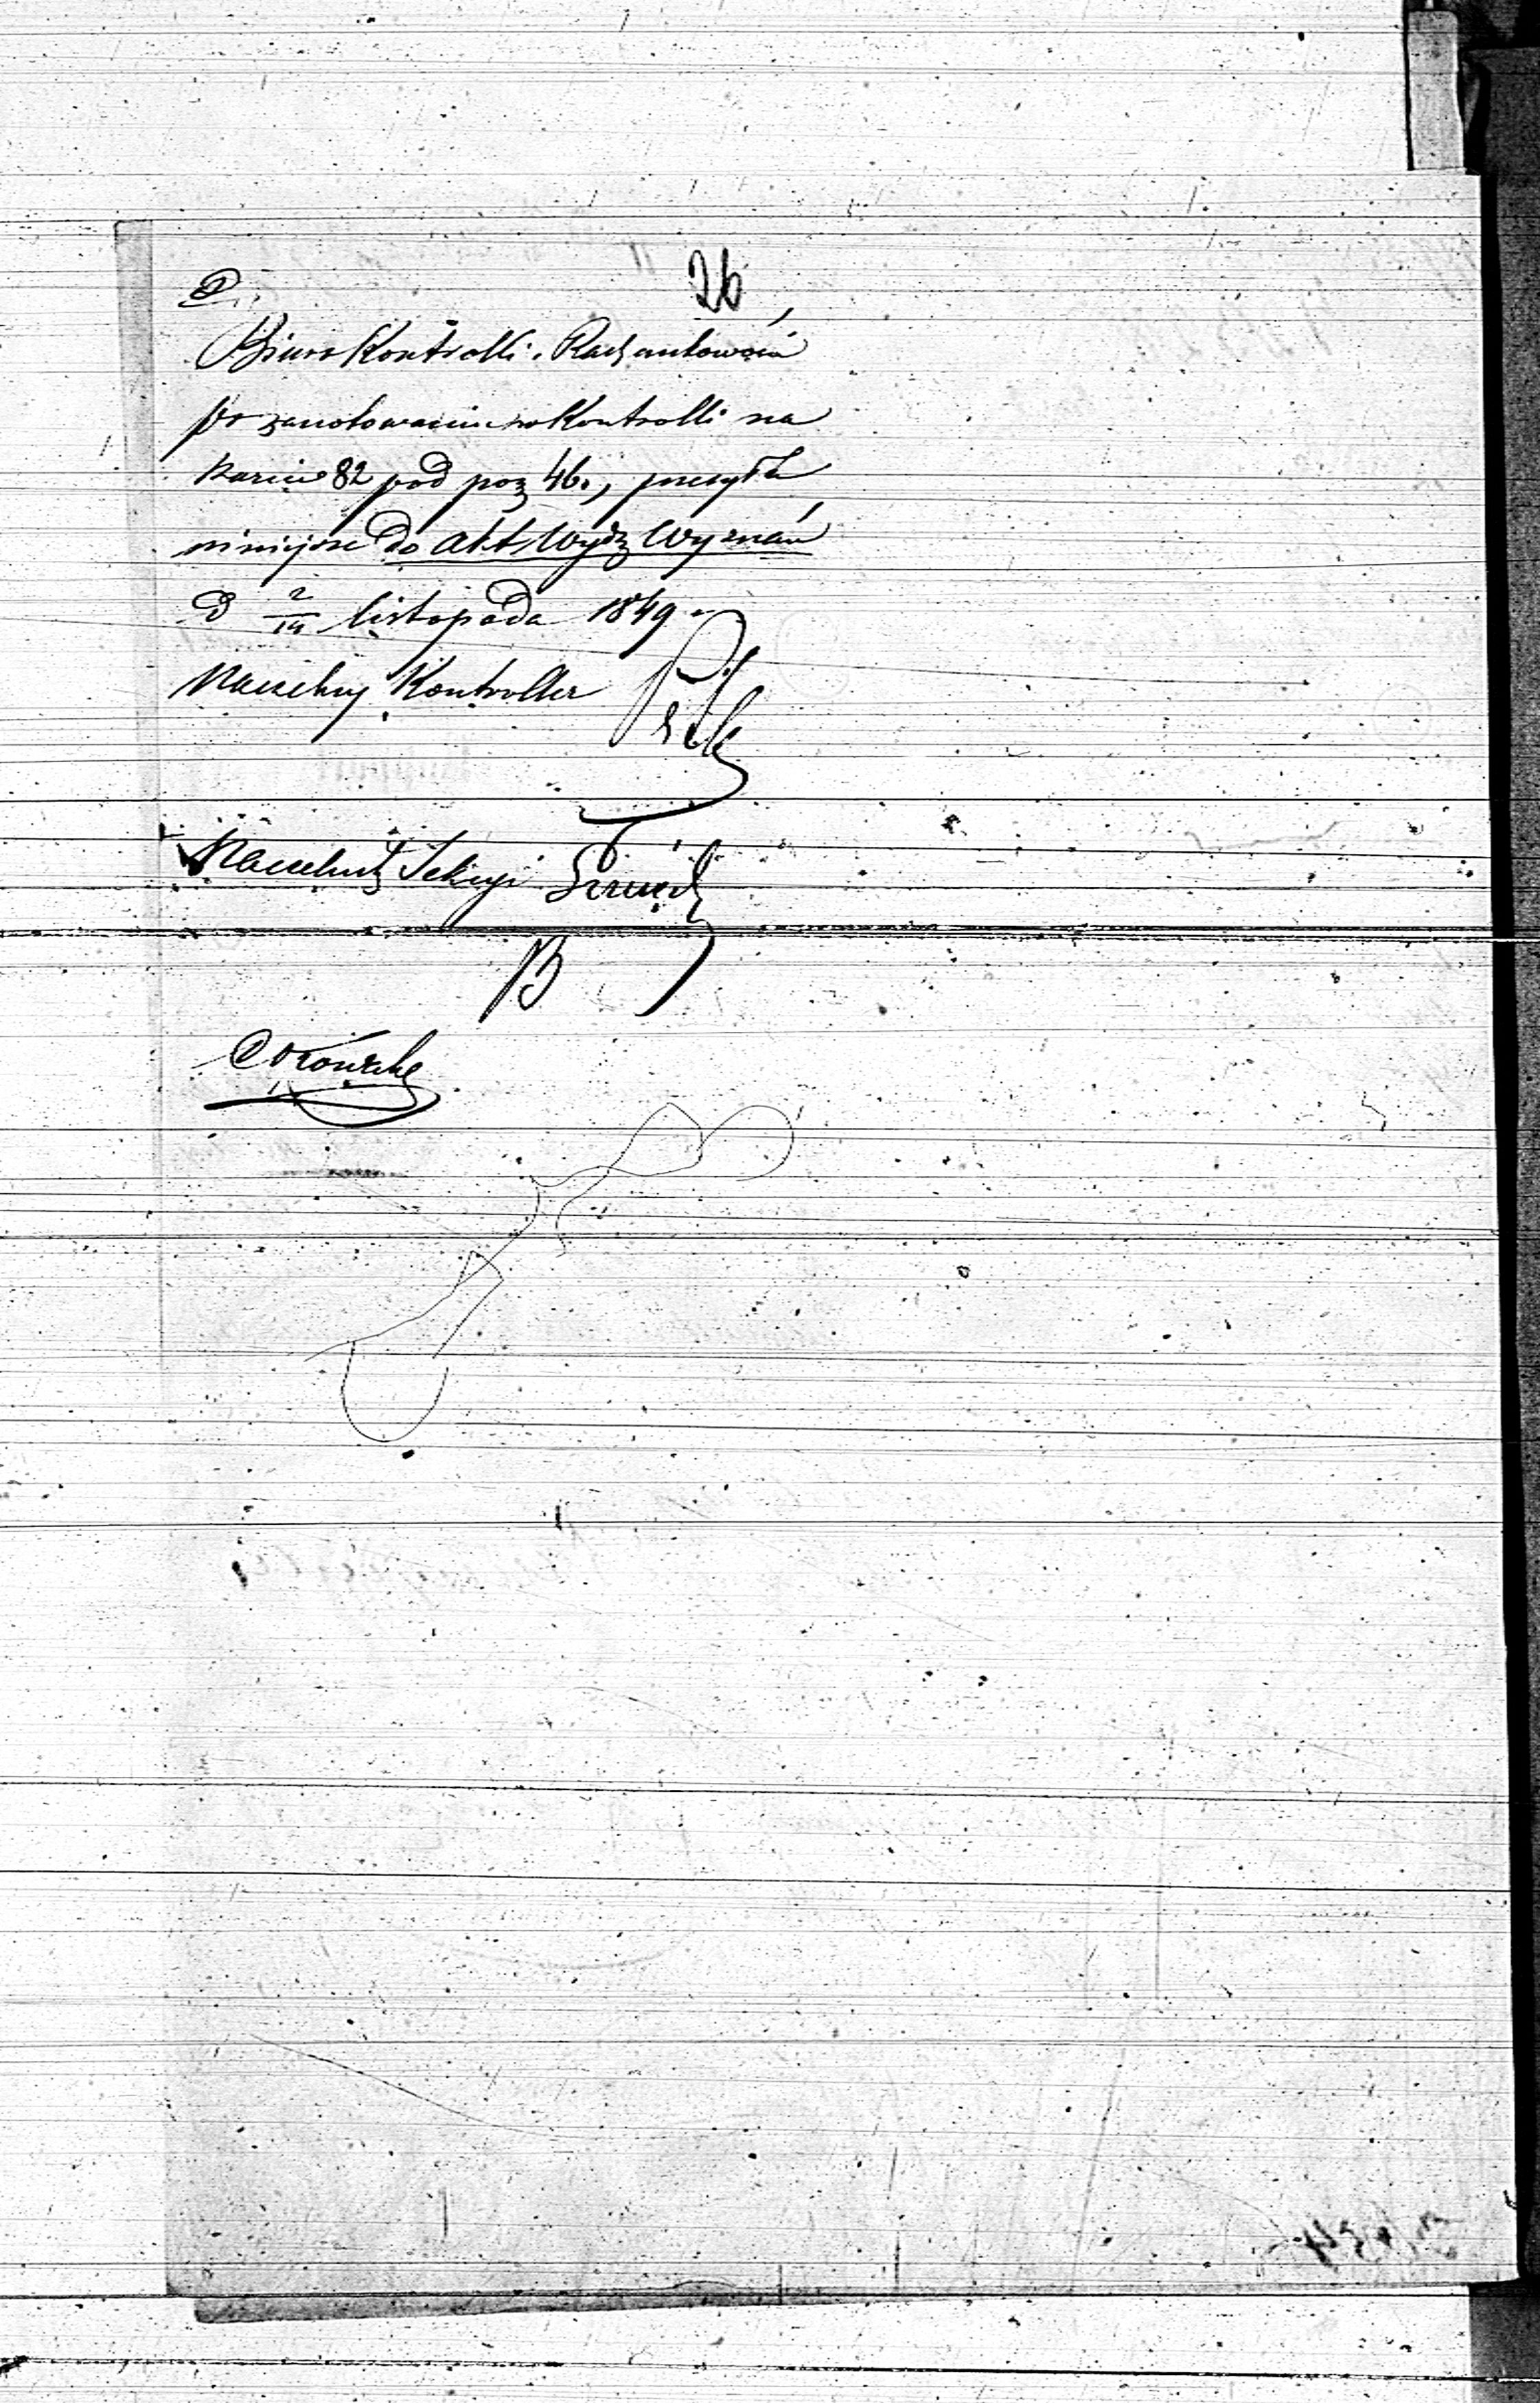 26
Biuro Kontrolli. Rachunkowości
po zanotowaniu w Kontrolli na
karcie 82 pod poz 46., przesyła
niniejsze do Akt Wydz Wyznań
D 2/14 listopada 1849
Naczelny Kontroller
Naczelnik Sekcyi
B